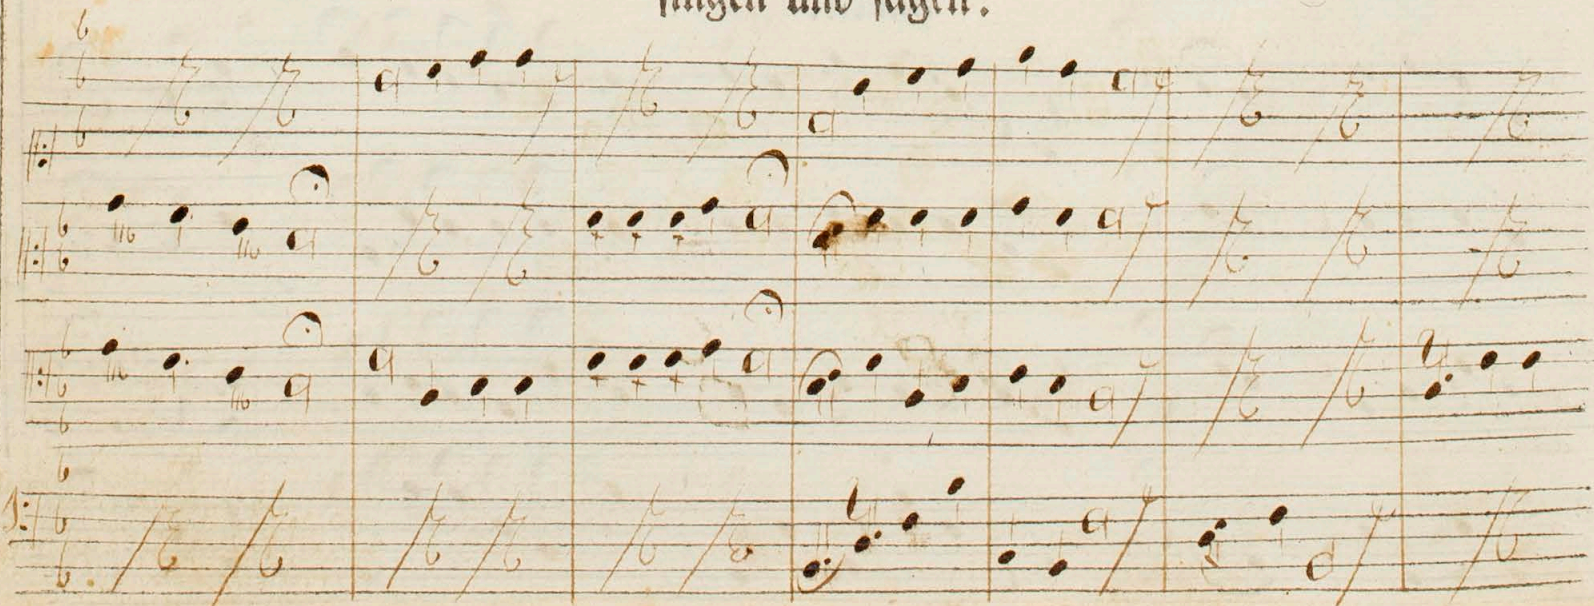 singen und sagen.